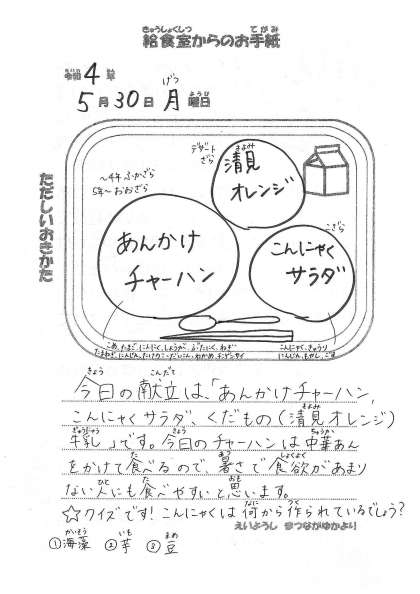 給食室からのお手紙
令和4年
5月30日月曜日
ただしいおきかた
デザートざら
清見オレンジ
～4年 ふかざら
5年～ おおざら
あんかけチャーハン
こざら
こんにゃくサラダ
こめ、たまご、にんにく、しょうが、ぶたにく、ねぎ
たまねぎ、にんじん、たけのこ、だいこん、わかめ、チンゲンサイ
こんにゃく、きゅうり
にんじん、もやし、ごま
今日の献立は、「あんかけチャーハン、
こんにゃくサラダ、くだもの(清見オレンジ)
牛乳」です。今日のチャーハンは中華あん
をかけて食べるので、暑さで食欲があまり
ない人にも食べやすいと思います。
☆クイズです!こんにゃくは何から作られているでしょう?
えいようし
①海藻 ②芋 ③豆